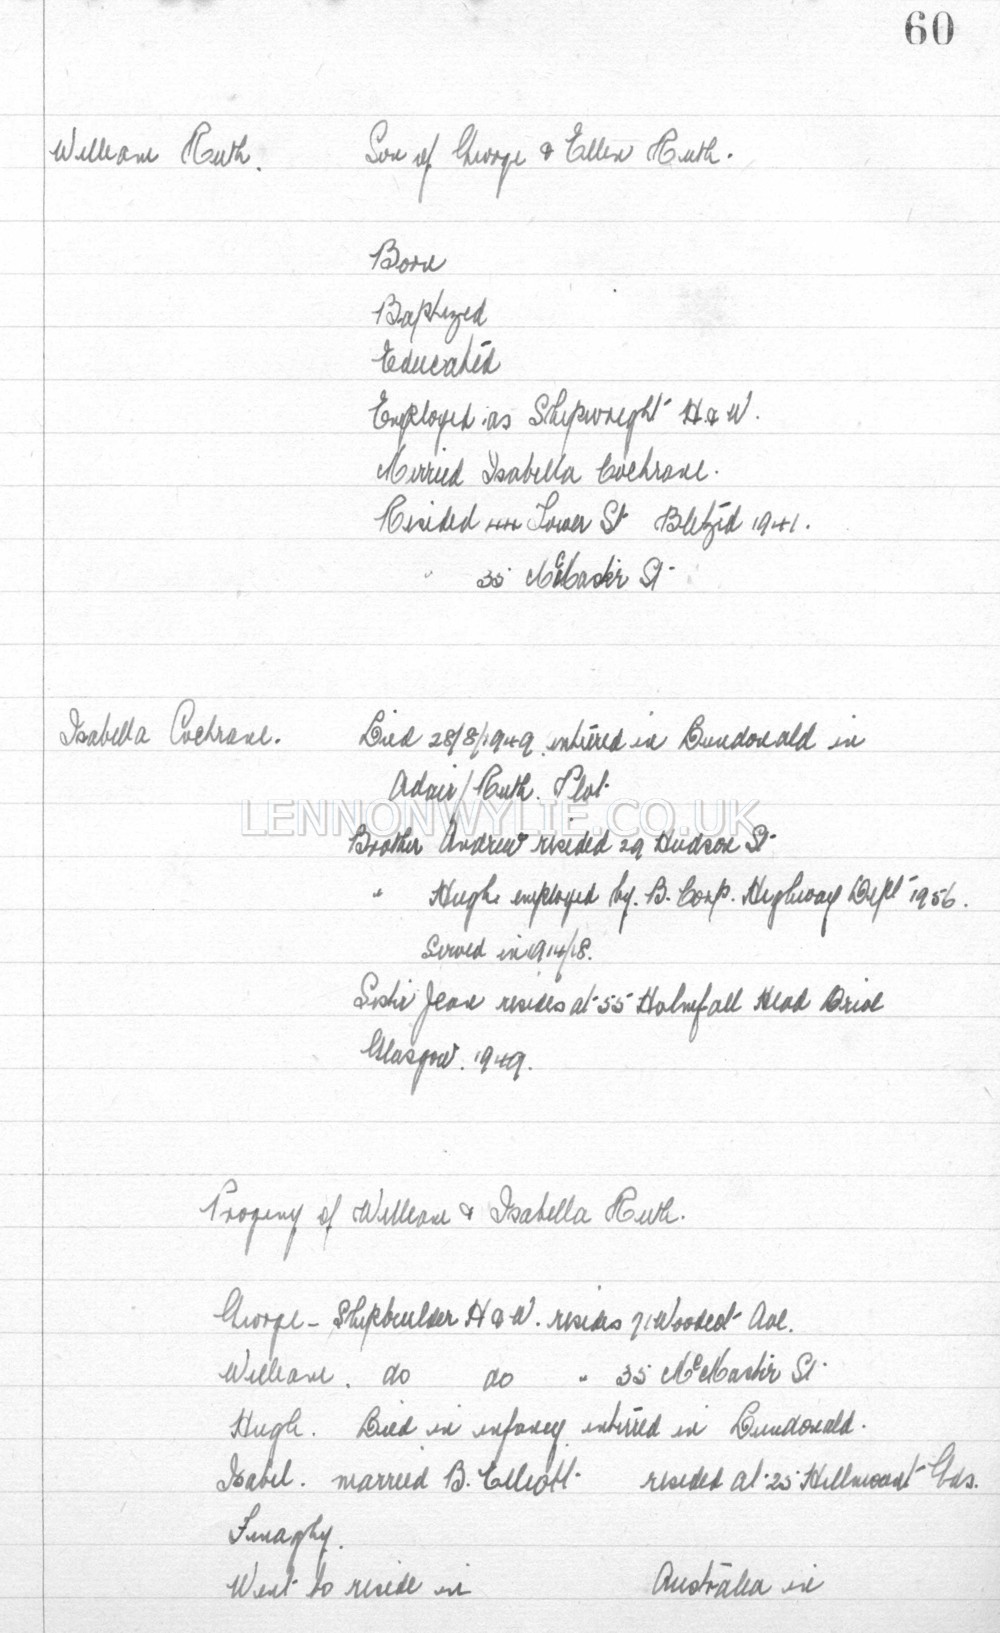 60
William Ruth. Son of George & Ellen Ruth.
Born
Baptized
Educated
Employed as Shipwright H & W.
Married Isabella Cochrane.
Resided 44 Tower St Blitz'd 1941.
" 35 McMaster St
Isabella Cochrane. Died 28/8/1949 interred in Dundonald in
Adair/Ruth. Plot
LENNONWYLIE.CO.UK
Brother Andrew resided 29 Hudson St
" Hugh employed by. B. Corp. Highway Dept 1956.
Served in 1914/18.
Sister Jean resides at 55 Holmfall Head Drive
Glasgow. 1949.
Progeny of William & Isabella Ruth.
George - Shipbuilder H & W. resides 71 Woodcot Ave.
William. do do " 35 McMaster St
Hugh. Died in infancy interred in Dundonald.
Isabel. married B. Elliott resided at 25 Hillmount Gds.
Finaghy.
Went to reside in Australia in